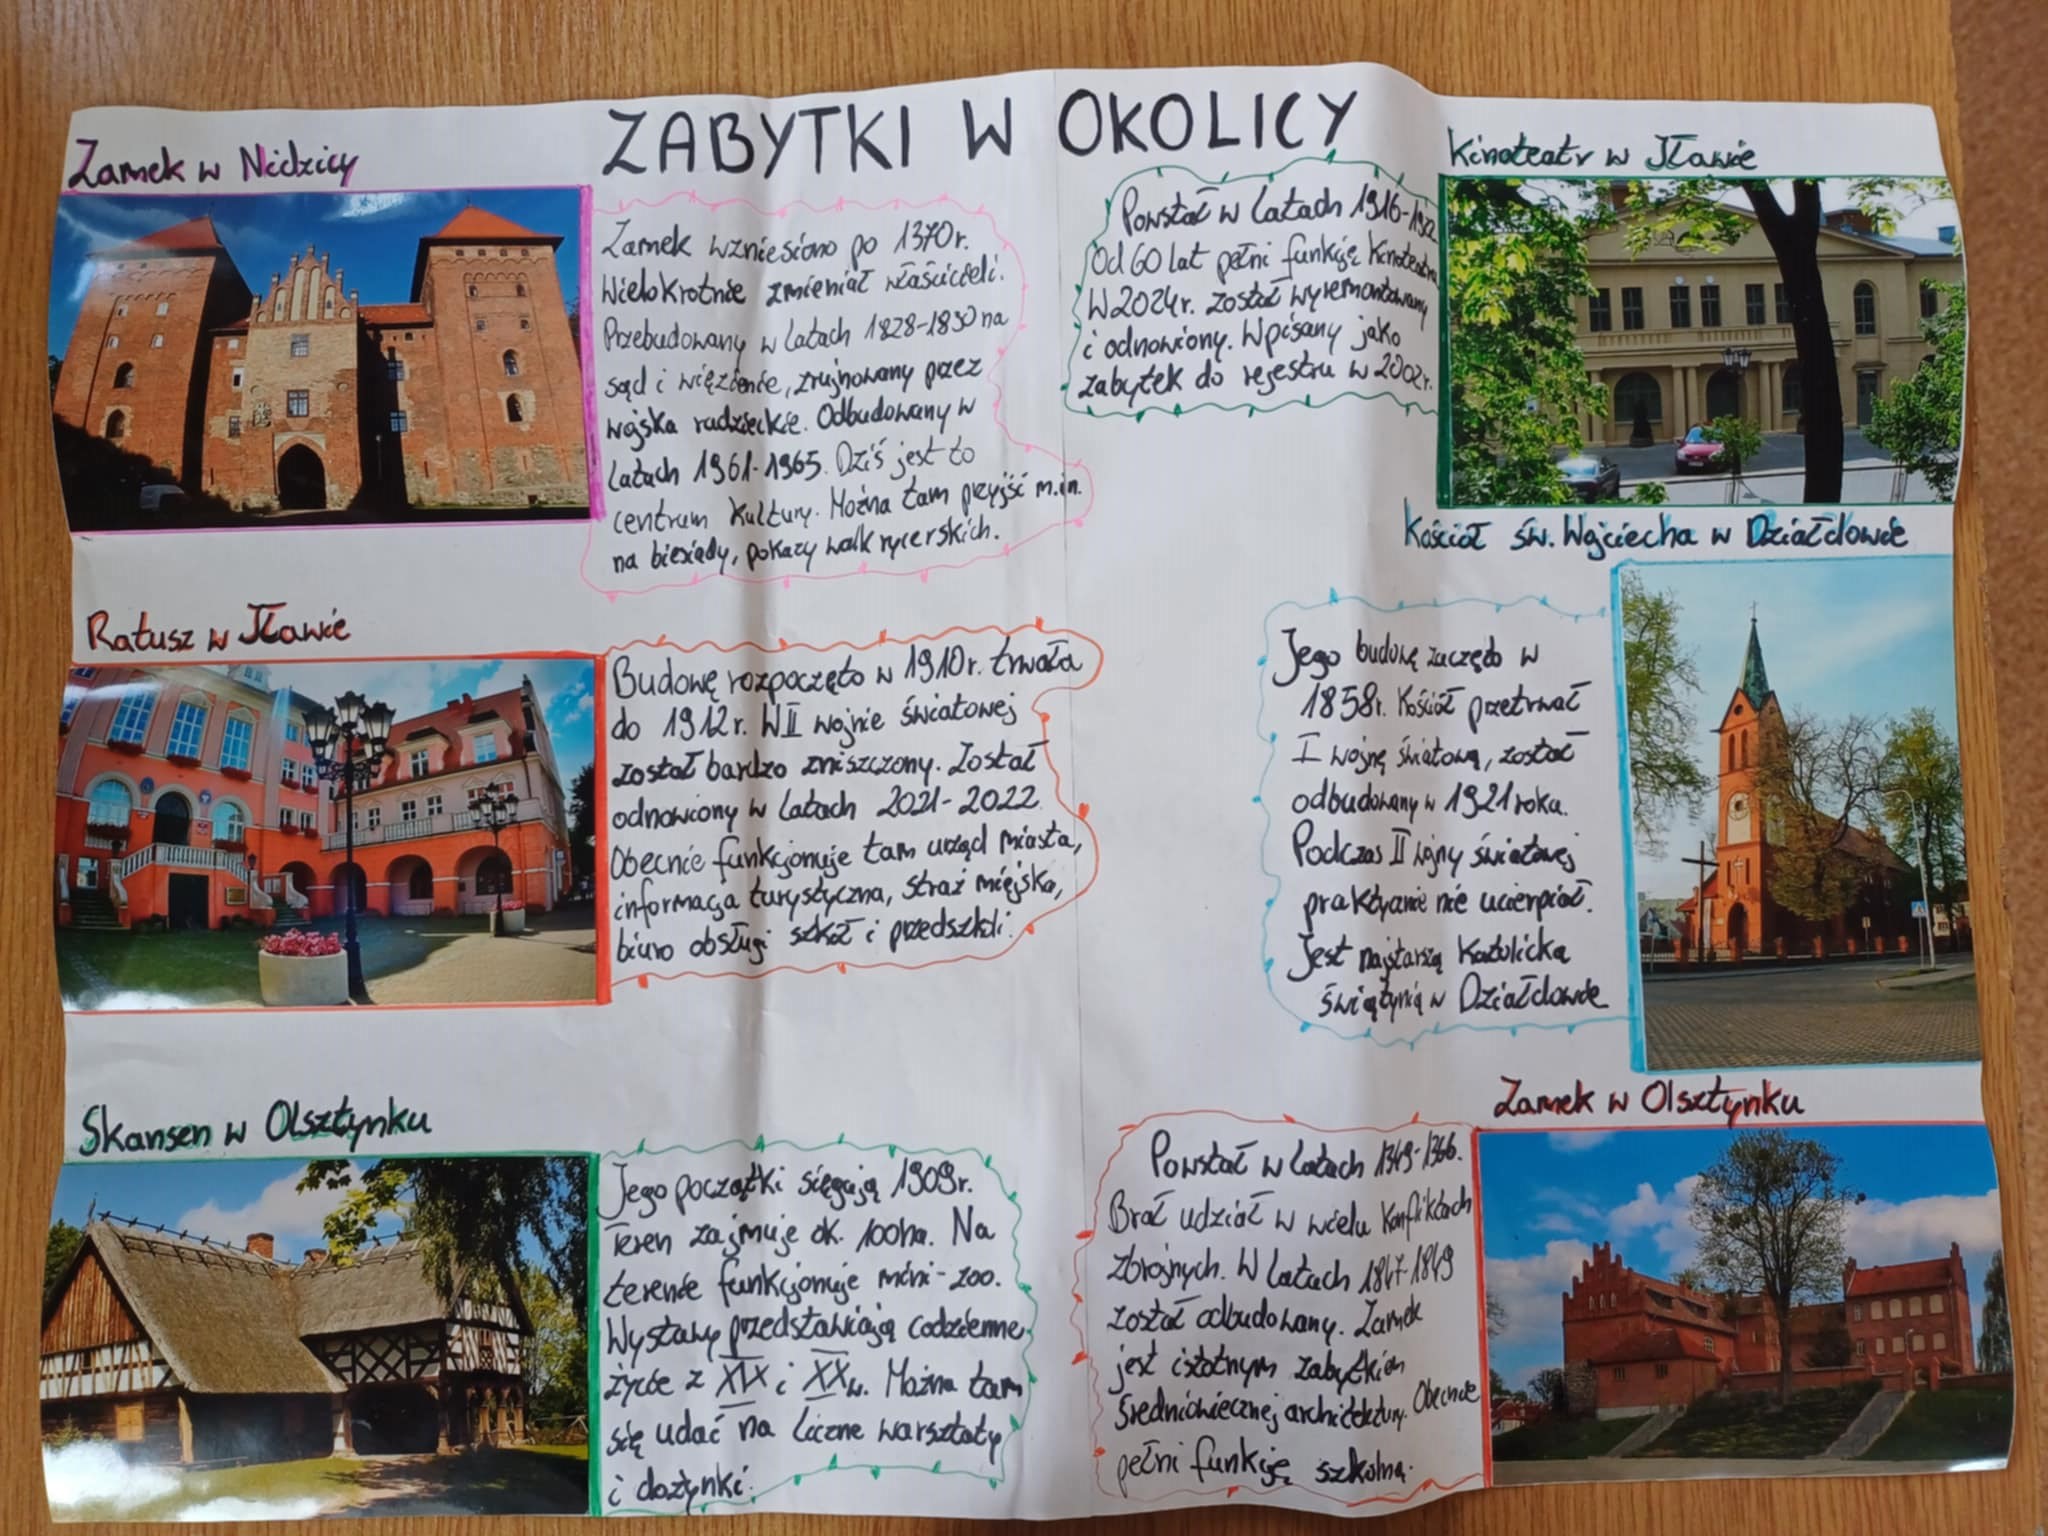 ZABYTKI W OKOLICY
Zamek w Nidzicy
Zamek wzniesiono po 1370r.
Wielokrotnie zmieniał właścicieli.
Przebudowany w latach 1828-1830 na
sąd i więzienie, zrujnowany przez
wojska radzieckie. Odbudowany w
latach 1961-1965. Dziś jest to
centrum kultury. Można tam przyjść m.in.
na biesiady, pokazy walk rycerskich.
Ratusz w Iławie
Budowę rozpoczęto w 1910r. trwała
do 1912r. W II wojnie światowej
został bardzo zniszczony. Został
odnowiony w latach 2021-2022.
Obecnie funkcjonuje tam urząd miasta,
informacja turystyczna, straż miejska,
biuro obsługi szkół i przedszkoli.
Skansen w Olsztynku
Jego początki sięgają 1909r.
Teren zajmuje ok. 100ha. Na
terenie funkcjonuje mini-zoo.
Wystawy przedstawiają codzienne
życie z XIX i XX w. Można tam
się udać na liczne warsztaty
i dożynki.
Kinoteatr w Iławie
Powstał w latach
Od 60 lat pełni funkcję kinoteatru
W 2024r. został wyremontowany
i odnowiony. Wpisany jako
zabytek do rejestru w 2002r.
Kościół św. Wojciecha w Działdowie
Jego budowę zaczęto w
1858r. Kościół przetrwał
I wojnę światową, został
odbudowany w 1921 roku.
Podczas II wojny światowej
praktycznie nie ucierpiał.
Jest najstarszą katolicką
świątynią w Działdowie
Zamek w Olsztynku
Powstał w latach 1349-1366.
Brał udział w wielu konfliktach
zbrojnych. W latach 1847-1849
został odbudowany. Zamek
jest istotnym zabytkiem
średniowiecznej architektury. Obecnie
pełni funkcję szkolną.